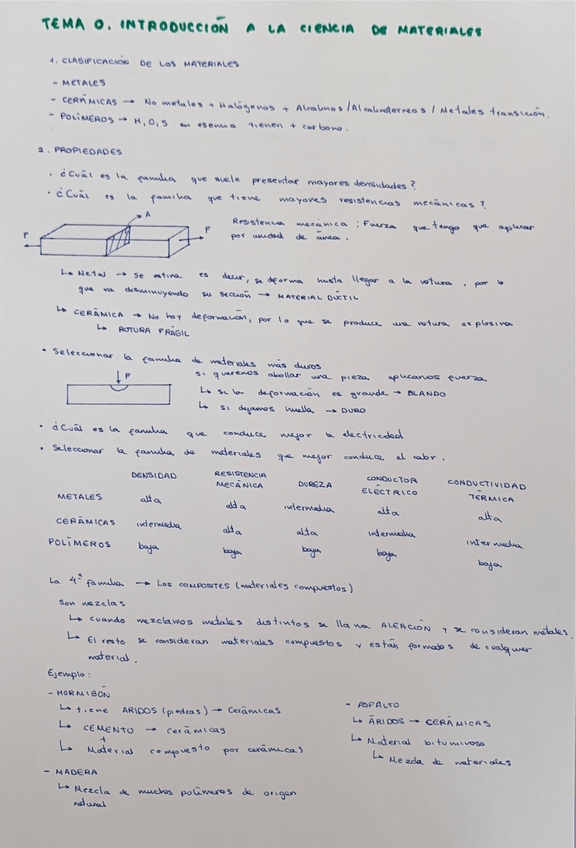 TEMA 0. INTRODUCCIÓN A LA CIENCIA DE MATERIALES
1. CLASIFICACIÓN DE LOS MATERIALES
- METALES
- CERÁMICAS → No metales + Halógenos + Alcalinos/Alcalinoterreos / Metales transición.
- POLÍMEROS → H, O, S en esencia tienen + carbono.
2. PROPIEDADES
• ¿Cuál es la familia que suele presentar mayores densidades?
• ¿Cuál es la familia que tiene mayores resistencias mecánicas?
A
F
F
Resistencia mecánica: Fuerza que tengo que aplicar
por unidad de área.
↳ Metal → Se estira es decir, se deforma hasta llegar a la rotura, por lo
que va disminuyendo su sección → MATERIAL DÚCTIL
↳ CERÁMICA → No hay deformación, por lo que se produce una rotura explosiva
↳ ROTURA FRÁGIL
• Seleccionar la familia de materiales más duros
P
si queremos abollar una pieza aplicamos fuerza
↳ Si la deformación es grande → BLANDO
↳ si dejamos huella → DURO
• ¿Cuál es la familia que conduce mejor la electricidad
• Seleccionar la familia de materiales que mejor conduce el calor.
DENSIDAD RESISTENCIA MECÁNICA DUREZA CONDUCTOR ELÉCTRICO CONDUCTIVIDAD TÉRMICA
METALES alta alta intermedia alta alta
CERÁMICAS intermedia alta alta intermedia intermedia
POLÍMEROS baja baja baja baja baja
La 4ª familia → LOS COMPOSITES (materiales compuestos)
Son mezclas
↳ cuando mezclamos metales distintos se llama ALEACIÓN y se consideran metales.
↳ El resto se consideran materiales compuestos y están formados de cualquier
material.
Ejemplo:
- HORMIGÓN
↳ tiene ÁRIDOS (piedras) → Cerámicas
↳ CEMENTO → cerámicas
+
↳ Material compuesto por cerámicas
- MADERA
↳ Mezcla de muchos polímeros de origen
natural
- ASFALTO
↳ ÁRIDOS → CERÁMICAS
↳ Material bituminoso
↳ Mezcla de materiales